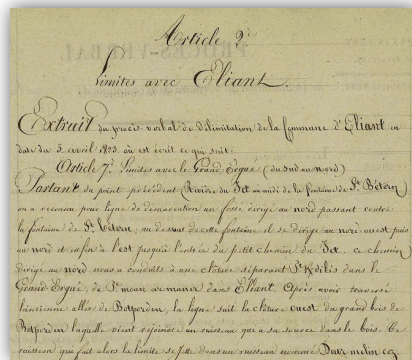 Article 2e
Limites avec Eliant.
Extrait du procès verbal de délimitation de la Commune d'Eliant en
date du 3. avril 1823 où est écrit ce qui suit:
Article 7e. Limites avec le Grand-Ergué (du sud au nord)
Partant du point précédent (Rivière du Jet au midi de la fontaine de St
on a reconnu pour ligne de démarcation un fossé dirigé au nord passant contre
la fontaine de St au dessus de cette fontaine il se dirige au nord-ouest puis
au nord et enfin à l'est jusqu'à l'entrée du petit chemin du Jet, ce chemin
dirigé au nord nous a conduits à une clôture séparant dans le
Grand-Ergué, de dans Elliant. Après avoir traversé
l'ancienne allée de la ligne suit la clôture ouest du grand bois de
laquelle vient rejoindre un ruisseau qui a sa source dans le bois. Ce
ruisseau qui fait alors la limite se jette dans un ruisseau nommé